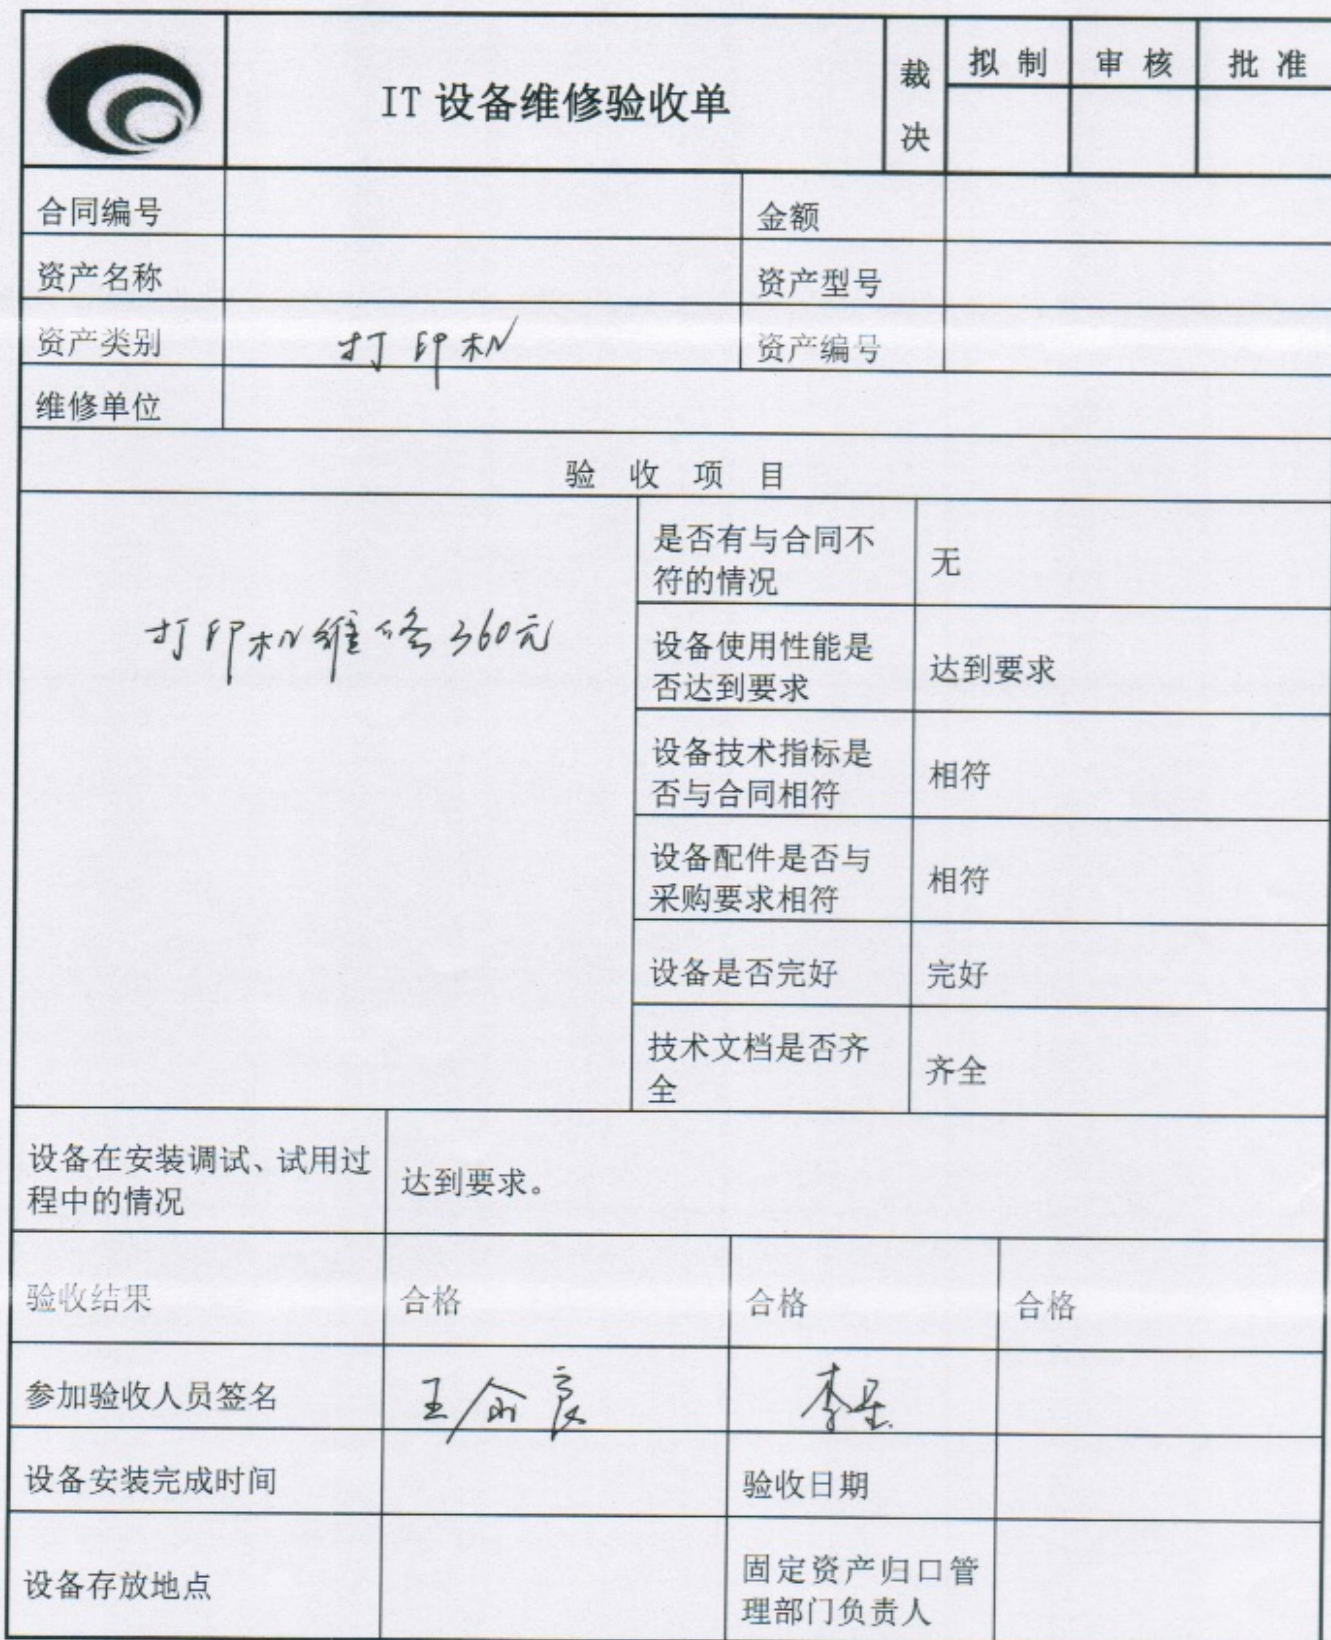 IT 设备维修验收单
裁决
拟 制
审 核
批 准
合同编号
金额
资产名称
资产型号
资产类别
打印机
资产编号
维修单位
验 收 项 目
打印机维修360元
是否有与合同不
符的情况
无
设备使用性能是
否达到要求
达到要求
设备技术指标是
否与合同相符
相符
设备配件是否与
采购要求相符
相符
设备是否完好
完好
技术文档是否齐
全
齐全
设备在安装调试、试用过
程中的情况
达到要求。
验收结果
合格
合格
合格
参加验收人员签名
设备安装完成时间
验收日期
设备存放地点
固定资产归口管
理部门负责人